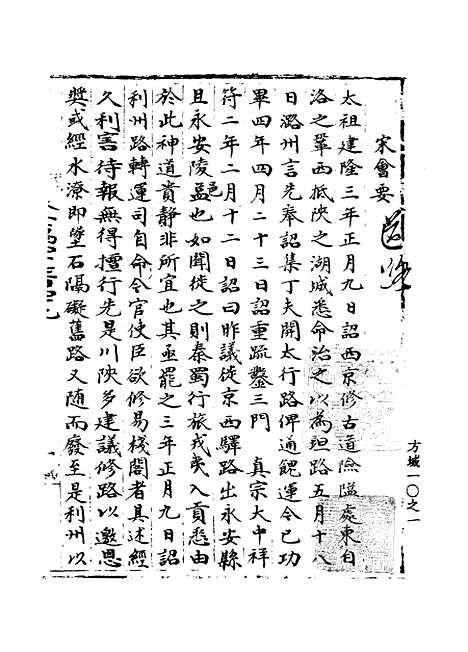 宋會要
道路
太祖建隆三年正月九日詔西京修古道險隘處東自
洛之鞏西抵陝之湖城悉命治之以為坦路五月十八
日潞州言先奉詔集丁夫開太行路俾通餽運今已功
畢四年四月二十三日詔重疏鑿三門　真宗大中祥
符二年二月十二日詔曰昨議徙京西驛路出永安縣
且永安陵邑也如聞徙之則秦蜀行旅戎夷入貢悉由
於此神道貴靜非所宜也其亟罷之三年正月九日詔
利州路轉運司自今令官使臣欲修易棧閣者具述經
久利害待報無得擅行先是川陝多建議修路以邀恩
獎或經水潦即墮石隔礙舊路又隨而廢至是利州以
方域一〇之一